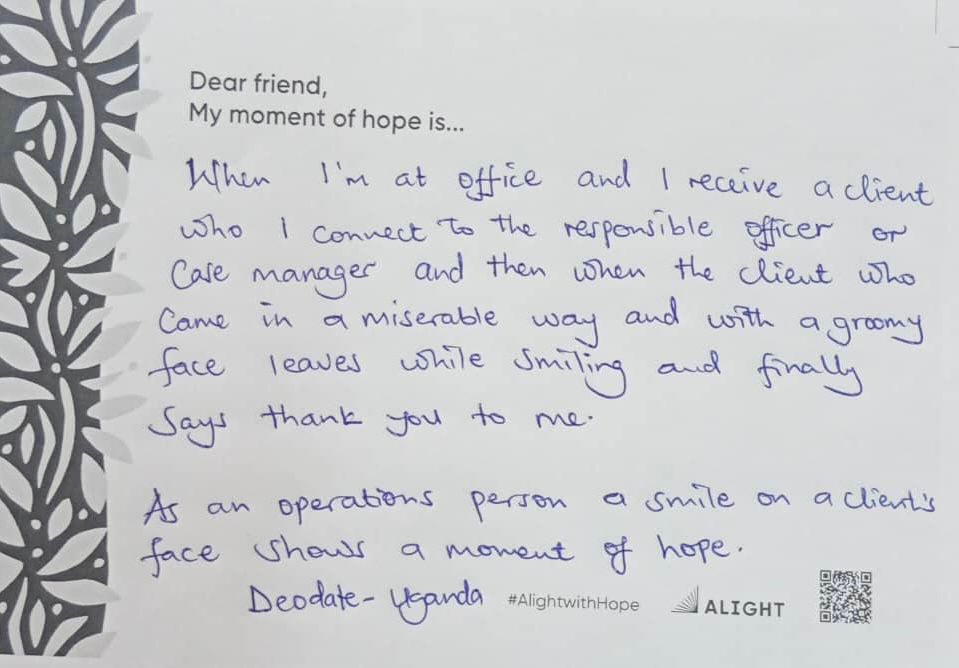 Dear friend,
My moment of hope is...
When I'm at office and I receive a client
who I connect to the responsible officer or
Case manager and then when the client who
Came in a miserable way and with a groomy
face leaves while smiling and finally
Says thank you to me.
As an operations person a smile on a client's
face shows a moment of hope.
Deodate - Uganda #AlightwithHope ALIGHT